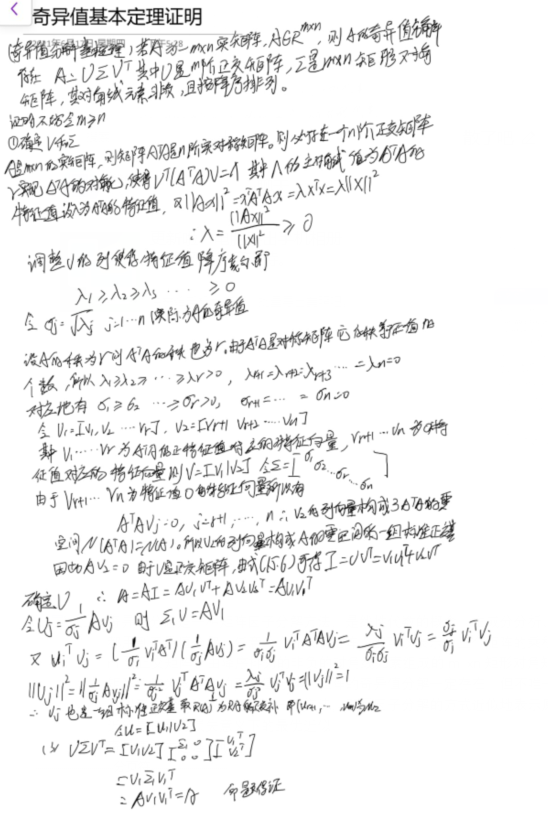 奇异值基本定理证明
奇异值分解基本定理：若A为一m×n实矩阵，A∈R^{m×n}，则A的奇异值分解
存在 A=UΣV^T 其中U是m阶正交矩阵，Σ是m×n矩形对角
矩阵，其对角线元素非负，且按降序排列。
证明 不妨令m≥n
①确定V和Σ
A是m×n的实矩阵，则矩阵A^TA是n阶实对称矩阵。则存在一个n阶正交矩阵
V实现A^TA的对角化，使得V^T(A^TA)V=Λ 其中Λ的主对角线值为A^TA的
特征值 设λ为A^TA的特征值，||Ax||²=x^TA^TAx=λx^Tx=λ||x||²
∴λ=||Ax||²/||x||² ≥0
调整V的列使得特征值降序排列即
λ1≥λ2≥λ3 … ≥0
令 σj=√λj j=1…n 实际为A的奇异值
设A的秩为r则A^TA的秩也为r.由于A^TA是对称矩阵 它的秩等于正特征值的
个数，所以λ1≥λ2≥ … ≥λr>0, λr+1=λr+2=λr+3 … =λn=0
对应地有 σ1≥σ2 … ≥σr>0, σr+1= … =σn=0
令V1=[V1 V2 … Vr], V2=[Vr+1 Vr+2 … Vn]
其中V1…Vr为A^TA的正特征值对应的特征向量，Vr+1…Vn为0特
征值对应的特征向量 则V=[V1 V2] 令Σ=[σ1 σ2 … σr … σn]
由于Vr+1…Vn为特征值0的特征向量所以有
A^TAVj=0, j=r+1,…,n ∴V2的列向量构成了A^TA的零
空间N(A^TA)=N(A).所以V2的列向量构成A的零空间的一组标准正交基
因此AV2=0 由于V是正交矩阵，由式(15.6)可得 I=VV^T=V1V1^T+V2V2^T
确定U ∴A=AI=AV1V1^T+AV2V2^T=AV1V1^T
令Uj=1/σj AVj 则 Σ1U=AV1
又 Ui^TUj=(1/σi Vi^TA^T)(1/σj AVj)=1/σiσj Vi^TA^TAVj=λj/σiσj Vi^TVj=σj/σi Vi^TVj
||Uj||²=||1/σj AVj||²=1/σj² Vj^TA^TAVj=λj/σj² Vj^TVj=||Vj||²=1
∴Uj也是一组标准正交基
令U=[U1 U2]
UΣV^T=[U1 U2][Σ1 0 0 0][V1^T V2^T]
=U1Σ1V1^T
=AV1V1^T=A 命题得证